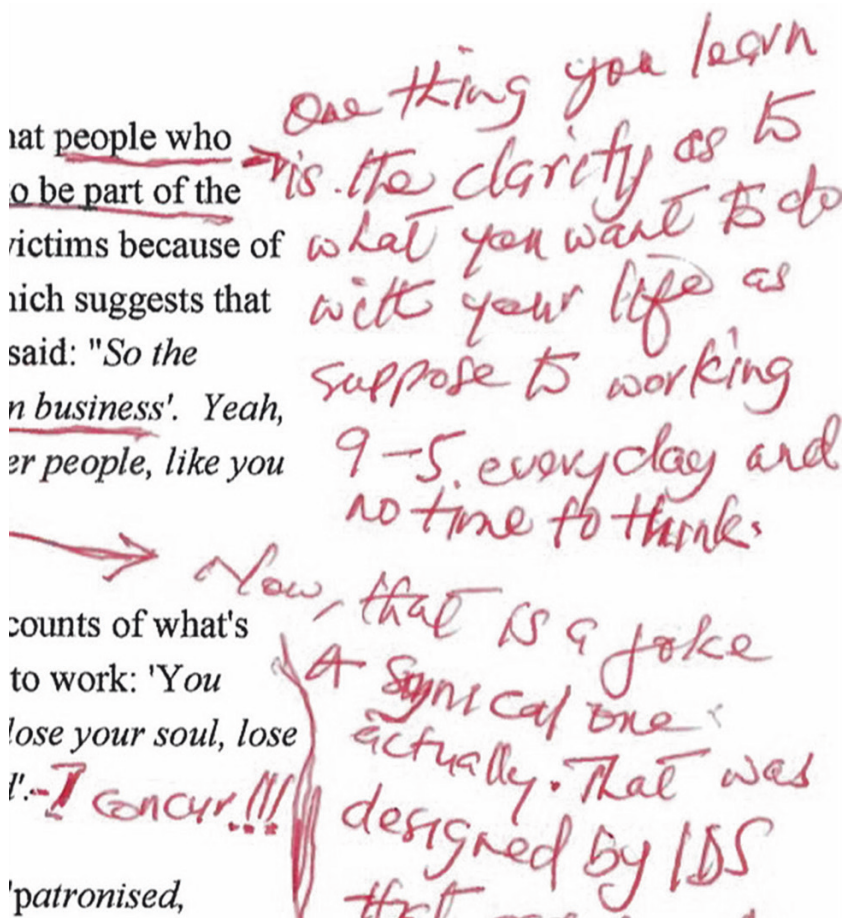 hat people who
o be part of the
victims because of
hich suggests that
said: "So the
n business'. Yeah,
er people, like you
counts of what's
to work: 'You
lose your soul, lose
l'. - I concur!!!
'patronised,
One thing you learn
is the clarity as to
what you want to do
with your life as
suppose to working
9-5. everyday and
no time to think.
Now, that is a joke
A synical one
actually. That was
designed by IDS
that